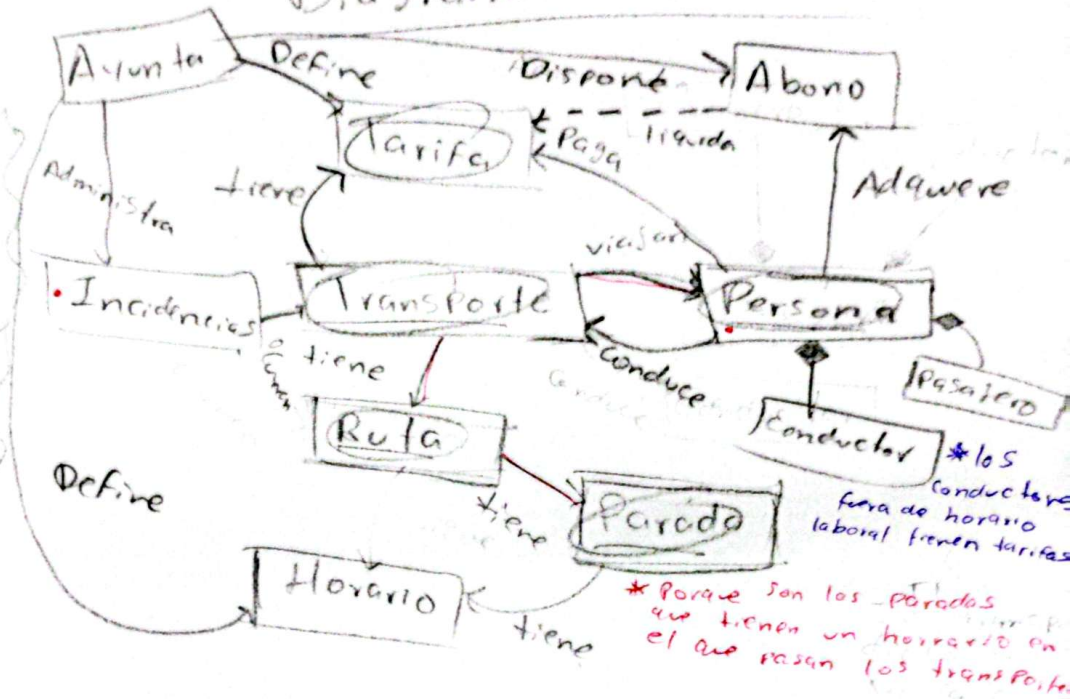 Ayunta
Define
Dispone
Abono
Tarifa
Paga
liquida
Administra
tiene
Adquiere
viajan
Incidencias
Transporte
Persona
tiene
conduce
Pasajero
Ruta
Conductor
* los
conductores
fuera de horario
laboral tienen tarifas
Define
tiene
Parada
Horario
tiene
* Porque son las paradas
que tienen un horrario en
el que pasan los transporte